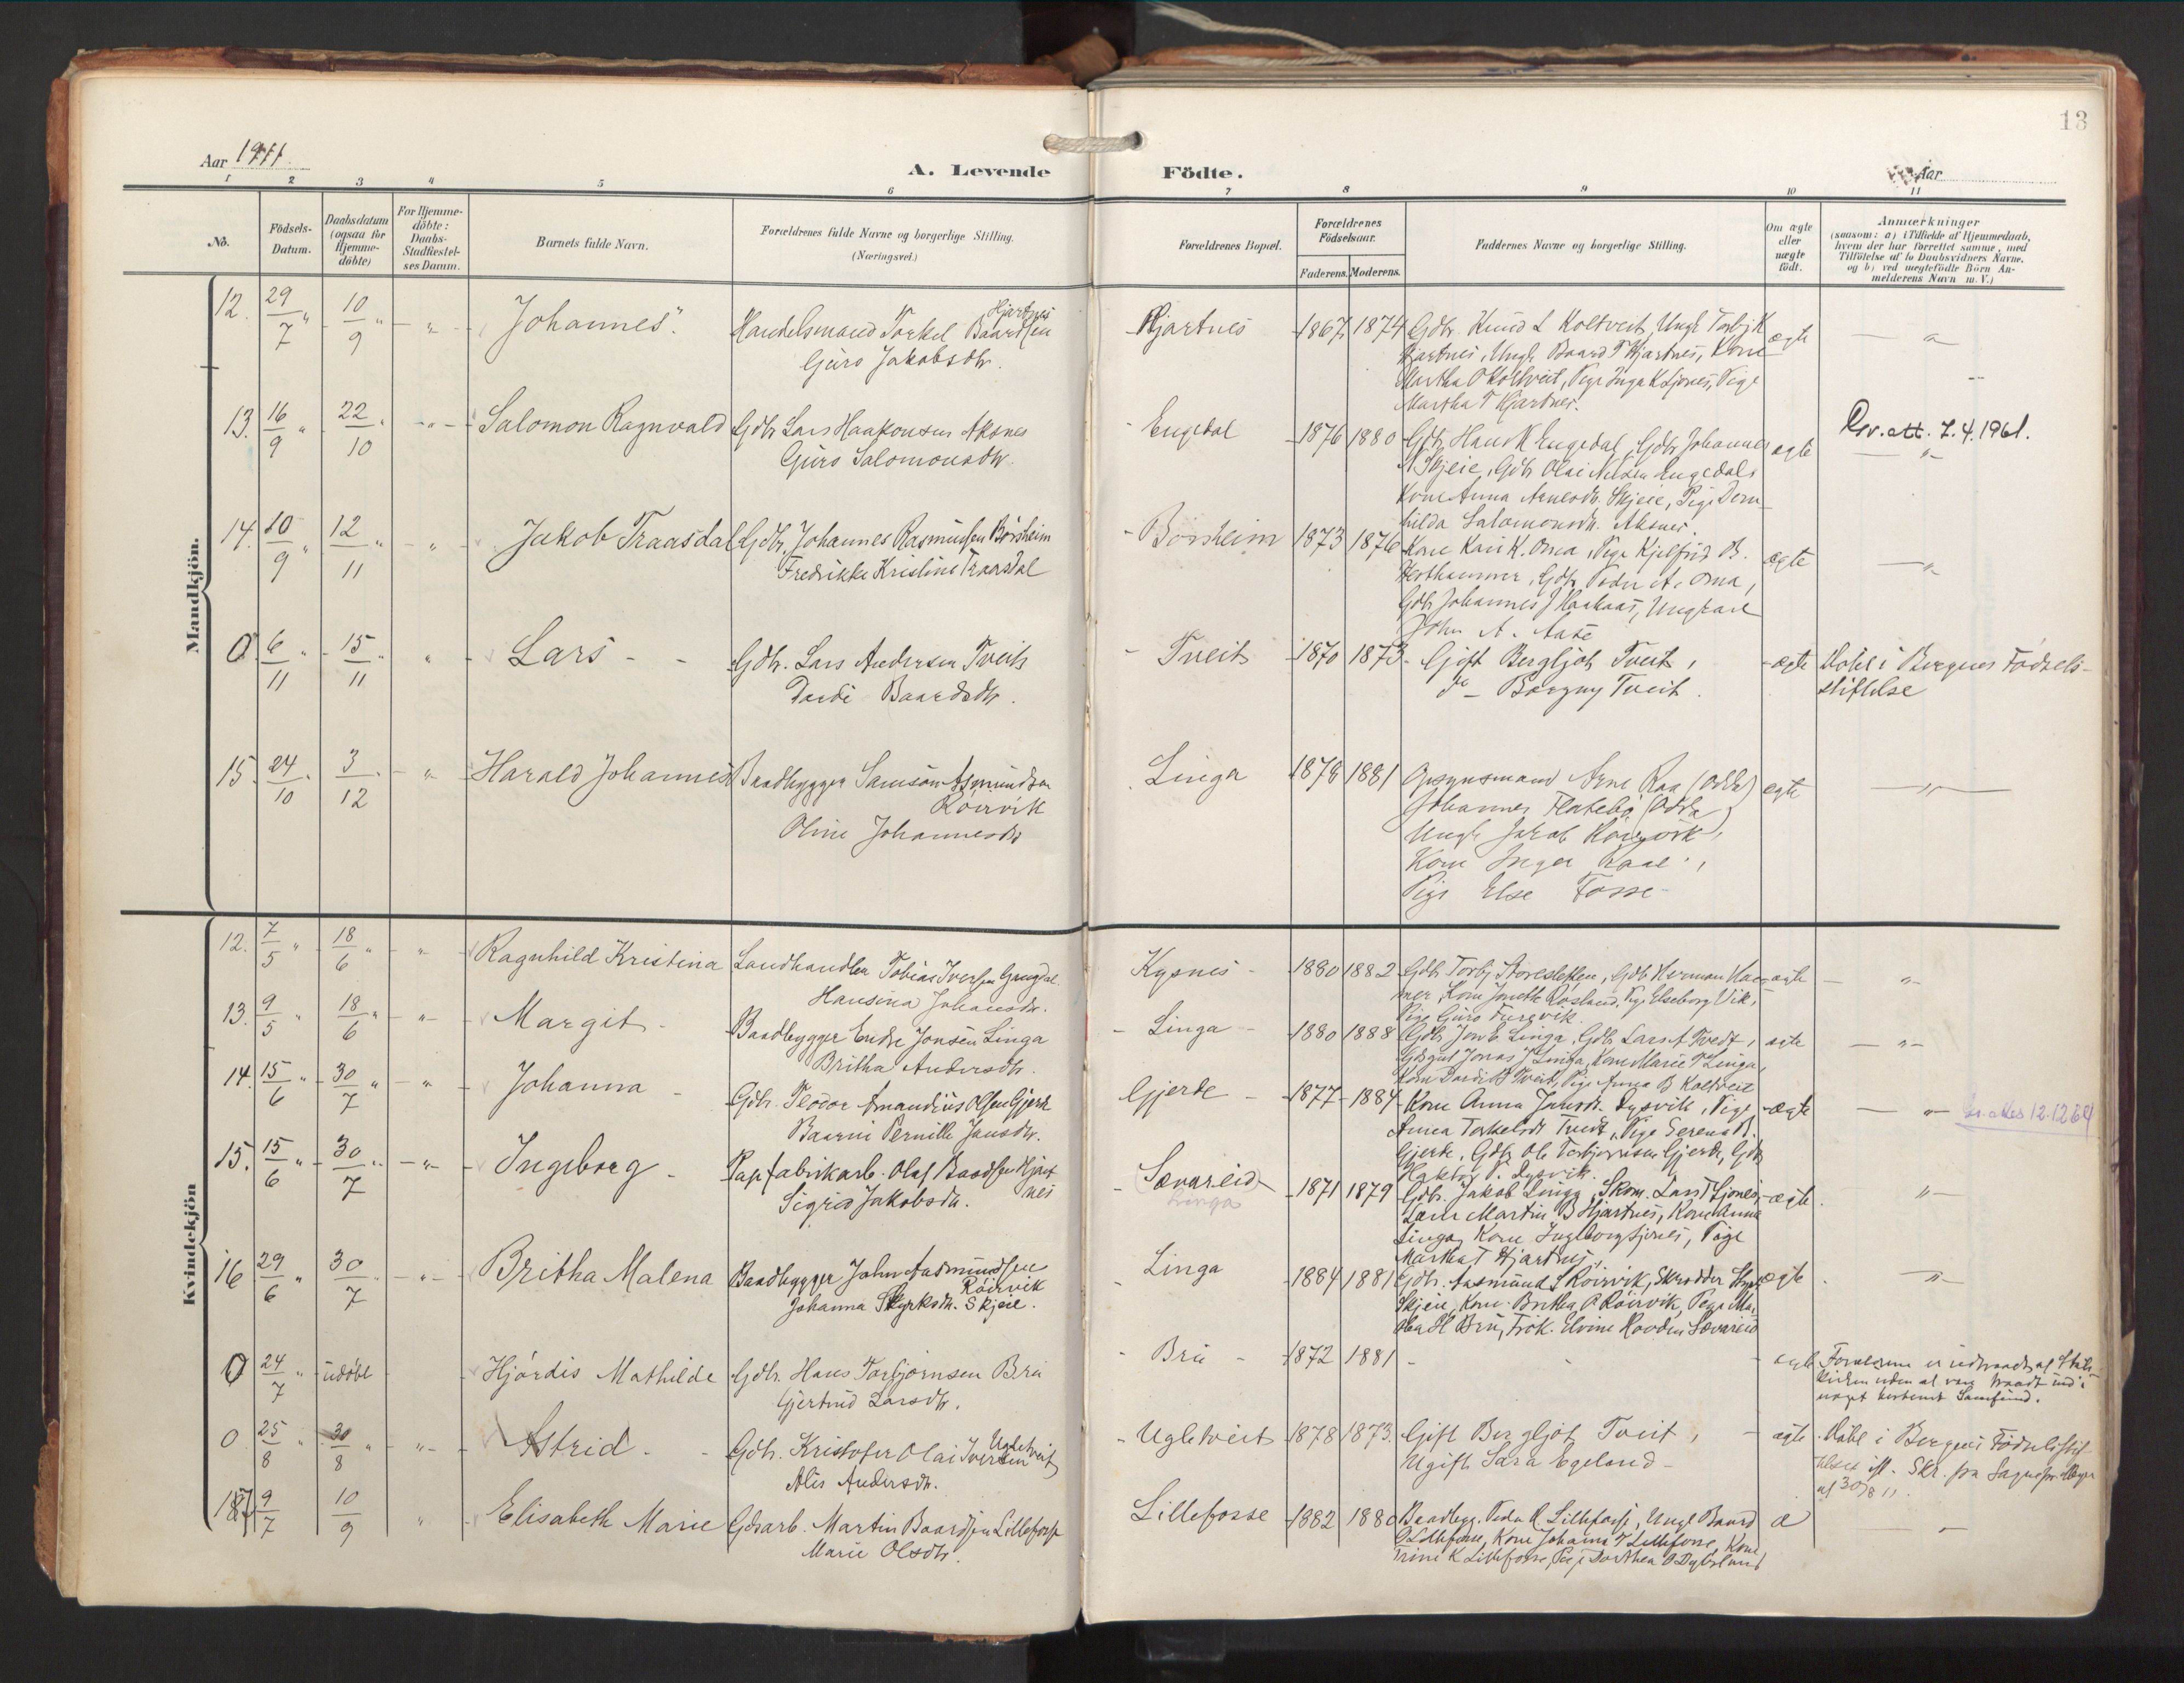 13
Aar 1911.
A. Levende Födte.
Aar
1 2 3 4 5 6 7 8 9 10 11
No.
Födsels-Datum.
Daabsdatum (ogsaa for Hjemme-döbte)
For Hjemme-döbte: Daabs-Stadfæstel-ses Datum.
Barnets fulde Navn.
Forældrenes fulde Navne og borgerlige Stilling. (Næringsvei.)
Forældrenes Bopæl.
Forældrenes Födselsaar.
Faderens. Moderens.
Faddernes Navne og borgerlige Stilling.
Om ægte eller uægte födt.
Anmærkninger
(saasom: a) i Tilfælde af Hjemmedaab,
hvem der har forrettet samme, med
Tilföielse af to Daabsvidners Navne.
og b) ved uægtefödte Börn An-
melderens Navn m. V.)
Mandkjön.
12. 29/7 " 10/9 " " Johannes. Handelsmand Torkel Baardsen Hjartnes
Guro Jakobsdtr.
Hjartnes 1867 1874 Gdbr. Knud L Koltveit, Ungk. Torbj K
Hjartnes, Ungk Baard T Hjartnes, Kone
Martha O Koltveit, Pige Inga K Ljones, Pige
Martha T Hjartnes.
ægte
13. 16/9 " 22/10 " " Salomon Ragnvald Gdbr Lars Haakonsen Aksnes
Guro Salomonsdtr.
Engedal 1876 1880 Gdbr Hans K Engedal, Gdbr Johannes
A Skjeie, Gdbr Olai Nilsen Engedal,
Kone Anna Arnesdtr. Skjeie, Pige Dorn
hilda Salomonsdtr. Aksnes.
ægte Gv. att. 7.4.1961.
14. 10/9 " 12/11 " " Jakob Traasdal Gdbr. Johannes Rasmussen Börsheim
Fredrikke Kristine Traasdal
Börsheim 1873 1876 Kone Kari K. Oma, Pige Kjelfrid B.
Hesthammer, Gdbr Peder A. Oma,
Gdbr Johannes J Haakaas, Ungkarl
John A. Aase
ægte "
0. 6/11 " 15/11 " " Lars Gdbr. Lars Andersen Tveit
Dordi Baardsdtr.
Tveit 1870 1873 Gift Bergljot Tveit,
do Borgny Tveit.
ægte Döbt i Bergens Födsels-
stiftelse
15. 24/10 " 3/12 " " Harald Johannes Baadbygger Samson Asmundsen
Röirvik
Oline Johannesdtr
Linga 1879 1881 Opsynsmand Arne Raa (Odda)
Johannes Flatebö (Odda)
Ungk Jakob Röirvik,
Kone Inger Raae,
Pige Else Fosse
ægte "
Kvindekjön
12. 7/5 " 18/6 " " Ragnhild Kristina Landhandler Tobias Iversen
Hansina Johansdtr.
Kysnes 1880 1882 Gdbr Torbj Storesletten, Gdbr Herman Ham-
mer, Kone Jonette Röslaud, Pige Elseborg Vik,
Pige Guro Furevik.
ægte "
13. 9/5 " 18/6 " " Margit Baadbygger Endre Jonsen Linga
Britha Andersdtr.
Linga 1880 1888 Gdbr. Jon E Linga, Gdbr Lars A Tvedt,
Gdsgut Jonas J Linga, Kone Marie T Linga,
Kone Dordi B Tveit, Pige Anna B Koltveit
ægte "
14. 15/6 " 30/7 " " Johanna Gdbr. Teodor Amandius Olsen Gjerde
Pernille Jansdtr.
Gjerde 1877 1884 Kone Anna Jansdtr. Dysvik, Pige
Anna Torkelsdtr Tvedt, Pige Serena B.
Gjerde, Gdbr Ole Torbjörnsen Gjerde, Gdbr
P. Dysvik.
ægte " 12.12.64
15. 15/6 " 30/7 " " Ingeborg Papfabrikarb. Olaf Baardsen Hjart
nes
Sigrid Jakobsdtr.
Sævareid
Linga
1871 1879 Gdbr. Jakob Linga, Skom. Lars T Ljones,
Martin B Hjartnes, Kone Anna
Linga, Kone Ingeborg Ljones, Pige
Martha T Hjartnes,
ægte "
16 29/6 " 30/7 " " Britha Malena Baadbygger John Aasmundsen
Röirvik
Johanna Styrksdtr. Skjeie.
Linga 1884 1881 Gdbr. Aasmund S Röirvik, Skrædder Styrk
Skjeie, Kone Britha A Röirvik, Pige Mar
tha H Bru, Frök. Elvine Sævareid
ægte "
0 24/7 " udöbt Hjördis Mathilde Gdbr. Hans Torbjörnsen Bru
Gjertrud Larsdtr.
Bru 1872 1881 ægte Forældrene er udtraadt af Stats-
kirken uden at være traadt ind i
noget bestemt Samfund.
0 25/8 " 30/8 " " Astrid Gdbr. Kristofer Olai Iversen Ugletveit
Alis Andersdtr.
Ugletveit 1878 1873. Gift Bergljot Tveit,
Ugift Sara Egeland
ægte Döbt i Bergens Födselsstif
telse ifl. Skr. fra Sognepr. Meyer
af 30/8 11.
17 9/7 10/9 " Elisabeth Marie Gdsarb. Martin Baardsen Lillefosse
Marie Olsdtr.
Lillefosse 1882 1880 Baadbygg. Peder R Lillefosse, Ungk Baard
O Lillefosse, Kone Johanna T Lillefosse, Kone
Trine K Lillefosse, Pige Dorthea O
æ